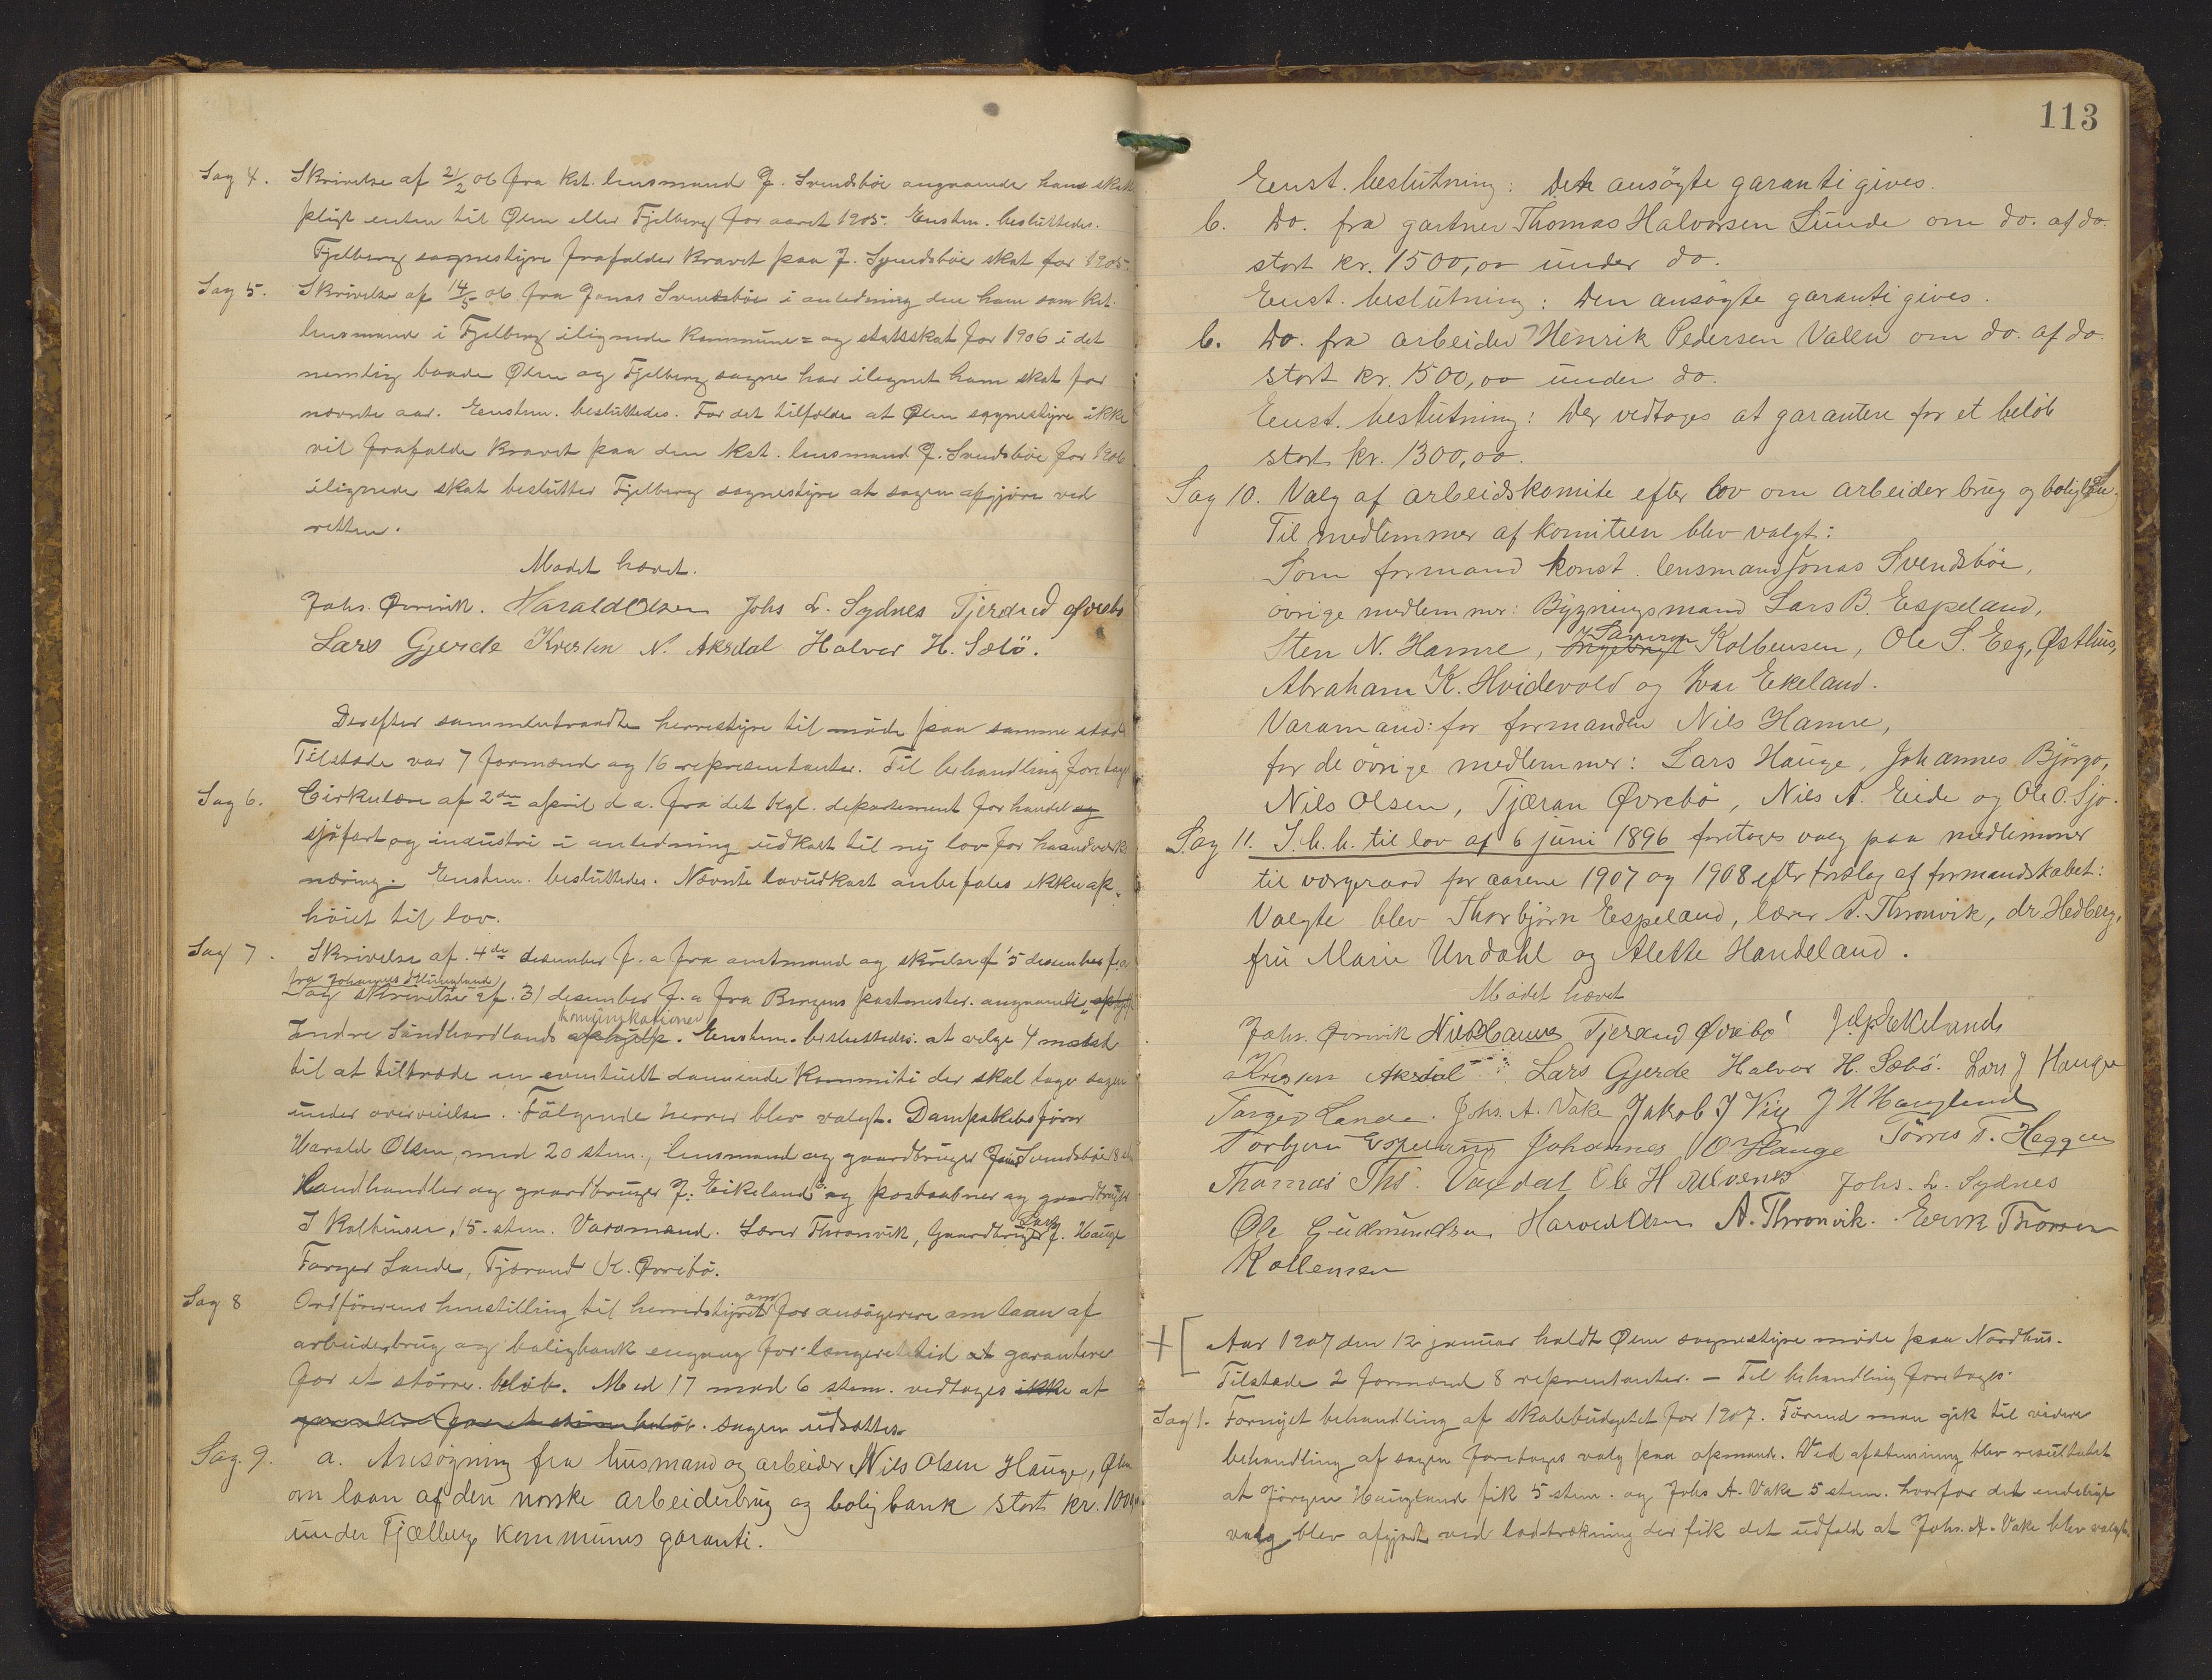 Sag 4. Skrivelse af 2/2 06 fra kst. lensmand J. Svendsbøe angaaende hans skatte
pligt enten til Ølen eller Fjelberg for aaret 1905. Enstem. besluttedes.
Fjelberg sognestyre frafalder kravet paa J. Svendsbøes skat for 1905.
Sag 5. Skrivelse af 14/5 06 fra Jonas Svendsbøe i anledning den ham som kst.
lensmand i Fjelberg ilignede kommune= og statsskat for 1906 i det
nemlig baade Ølen og Fjelberg sogne har ilignet ham skat for
nævnte aar. Eenstem. besluttedes. For det tilfælde at Ølen sognestyre ikke
vil frafalde kravet paa den kst. lensmand J. Svendsbøe for 1906
ilignede skat beslutter Fjelberg sognestyre at sagen afgjøre ved
retten.
Mødet hævet.
Johs. Øvrevik. Harald Olsen Johs L. Sydnes Tjerand Øvrebø
Lars Gjerde Kresten N. Aksdal Halvor H. Sæbö.
Derefter sammentraadte herrestyre til møde paa samme sted
Tilstæde var 7 formænd og 16 repræsentanter. Til behandling foretages
Sag 6. Cirkulære af 2den april d a. fra det kgl. departement for handel og
sjøfart og industri i anledning udkast til ny lov for haandverks
næring. Enstem. besluttedes. Nævnte lovudkast anbefales ikke op-
høiet til lov.
Sag 7. Skrivelse af 4de desember f. a fra amtmand og skrivelse af 5 desember f. a
fra Johannes Haugland
og skrivelse af 31 desember f. a fra Bergens postmester angaaende ophjelp
komunikationer
Indre Sündhordlands ophjelp. Enstem. besluttedes at velge 4 mænd
til at tiltræde en eventuelt dannende kommiti der skal tage sagen
under overveielse. Følgende herrer blev valgt. Dampskibsfører
Harald Olsen, med 20 stem., lensmand og gaardbruger Jonas Svendsbøe 18 stem
Landhandler og gaardbruger J. Eikeland og postaabner og gaardbruger
S Kolbensen, 15. stem. Varamænd. Lærer Thronvik, Gaardbruger Lars J. Hauge
Torger Lande, Tjærand K. Øvrebø.
Sag 8 Ordførerens henstilling til herredstyret om for ansøgerere om laan af
arbeiderbrug og boligbank engang for længere tid at garantere
for et større beløb. Med 17 mod 6 stem. vedtoges ikke at
garantere for et større beløb. sagen udsættes
Sag. 9. a. Ansøgning fra husmand og arbeider Nils Olsen Hauge, Ølen
om laan af den norske arbeiderbrug og boligbank stort kr. 1000,00
under Fjælberg kommunes garanti.
113
Eenst. beslutning: Den ansøgte garanti gives.
b. Do. fra gartner Thomas Halvorsen Sunde om do. af do.
stort kr. 1500,00 under do.
Eenst. beslutning: Den ansøgte garanti gives.
b. Do. fra arbeider Henrik Pedersen Valen om do. af do.
stort kr. 1500,00 under do.
Eenst. beslutning: Der vedtages at garantere for et beløb
stort kr. 1300,00.
Sag 10. Valg af arbeidskomite efter lov om arbeiderbrug og boliglån.
Til medlemmer af komiteen blev valgt:
Som formand konst. lensmand Jonas Svendsbøe,
øvrige medlemmer: Bygningsmand Lars B. Espeland,
Sten N. Hamre, Ingebrigt Samson Kolbensen, Ole S. Eeg, Østhus,
Abraham K. Hvidevold og Ivar Ekeland.
Varamænd: for formanden Nils Hamre,
for de øvrige medlemmer: Lars Hauge, Johannes Bjørgo,
Nils Olsen, Tjæran Øvrebø, Nils A. Eide og Ole O. Sjo.
Sag 11. I. h. h. til lov af 6 juni 1896 foretages valg paa medlemmer
til værgeraad for aarene 1907 og 1908 efter forslag af formandskabet:
Valgte blev Thorbjørn Espeland, lærer A. Thronvik, dr. Hedberg,
fru Marie Undahl og Alette Handeland.
Mødet hævet
Johs. Øvrevik Nils Hamre Tjerand Øvrebø J. Ekeland
Kresten Aksdal Lars Gjerde Halvor H. Sæbø. Lars J Hauge
Torger Lande. Johs. A. Vake Jakob J Vig J H Haugland
Torbjørn Espeland Johannes O Hauge Tørres T. Heggen
Thomas Ths. Vaxdal Ole H Johs. L. Sydnes
Ole Gudmundsen Harald Olsen A. Thronvik. Eerik Thorsen
Kolbensen
Aar 1907 den 12 januar holdt Ølen sognestyre møde paa Nordhus.
Tilstæde 2 formænd 8 reprentanter. – Til behandling foretages.
Sag 1. Fornyet behandling af skolebudgetet for 1907. Førend man gik til videre
behandling af sagen foretages valg paa opmand. Ved afstemning blev resultatet
at Jørgen Haugland fik 5 stem. og Johs A. Vake 5 stem. hvorfor det endeligt
valg blev afgjort ved lodtrækning der fik det udfald at Johs. A. Vake blev valgt.